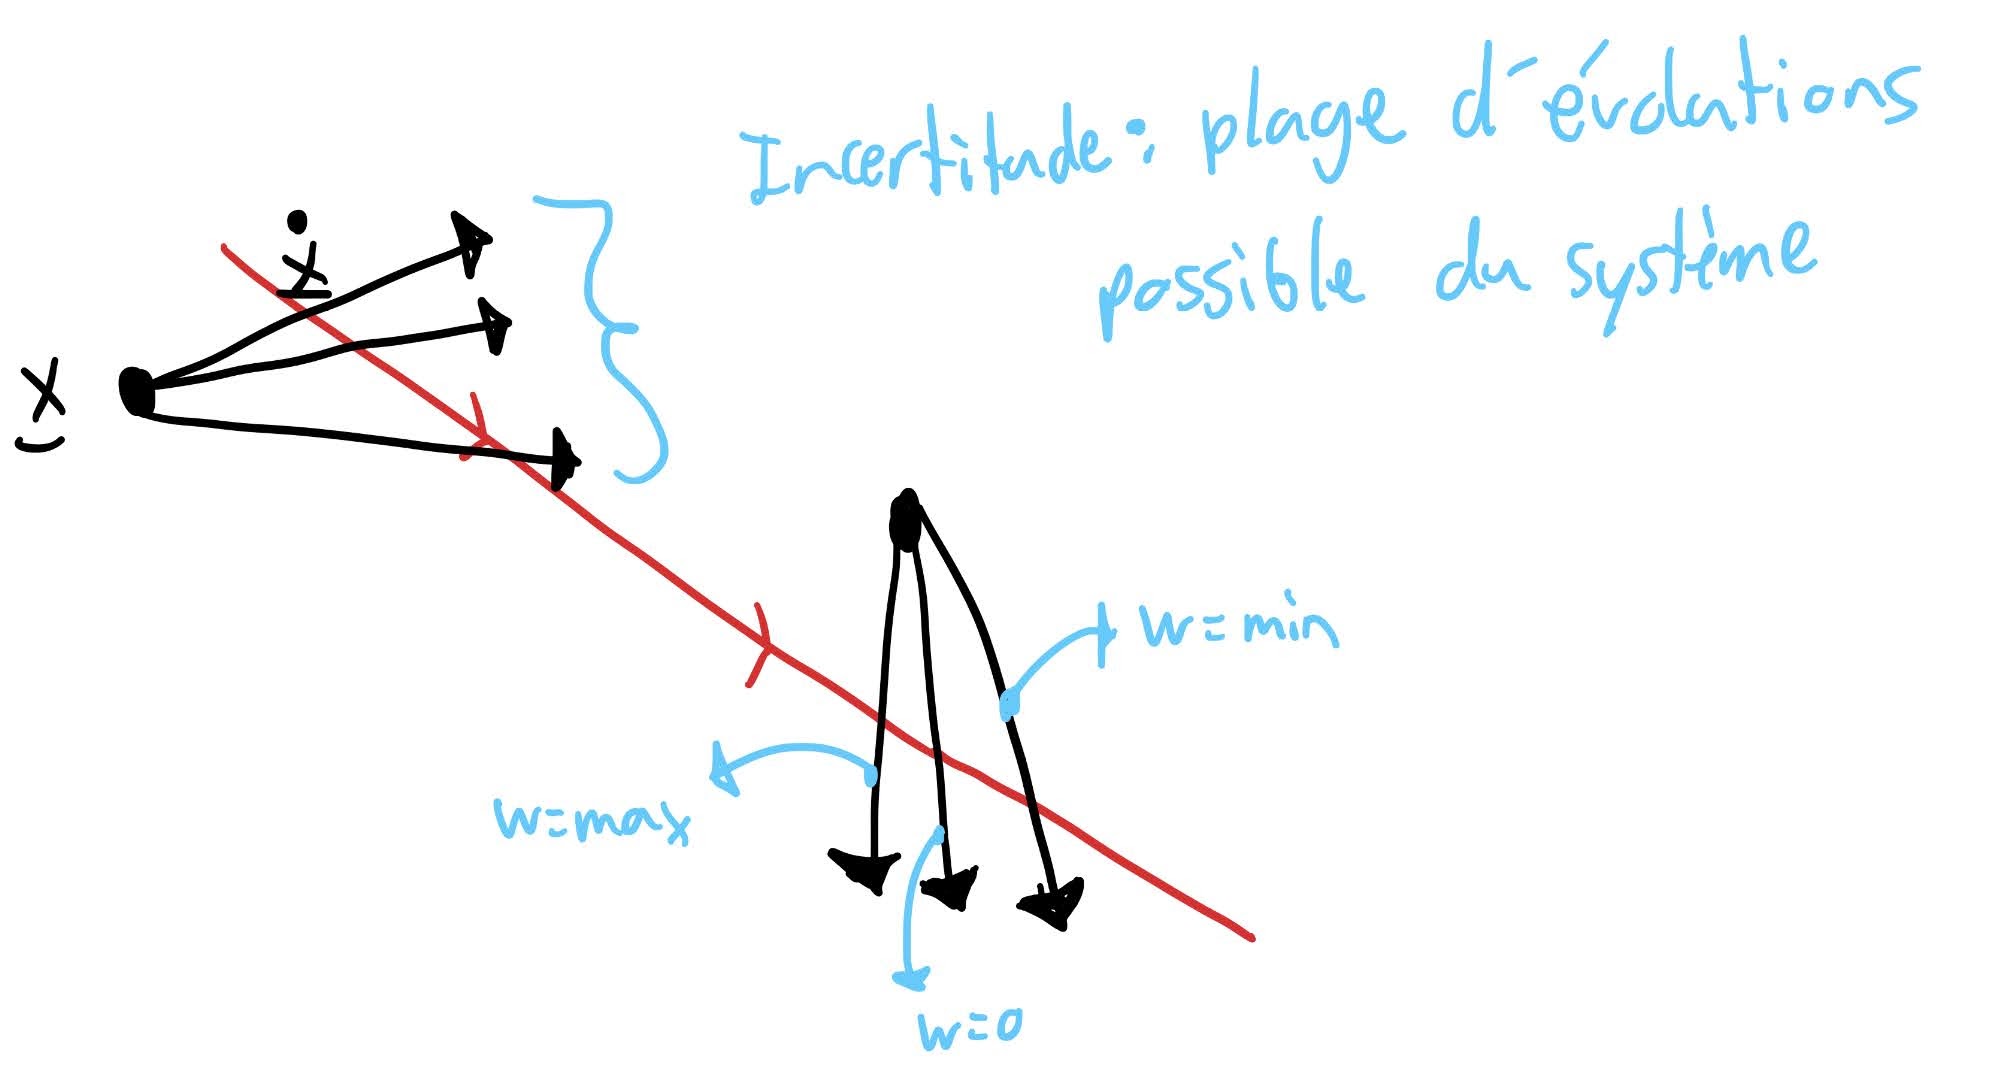 Incertitude : plage d'évolutions
possible du système
ẋ
x
w = min
w = max
w = 0